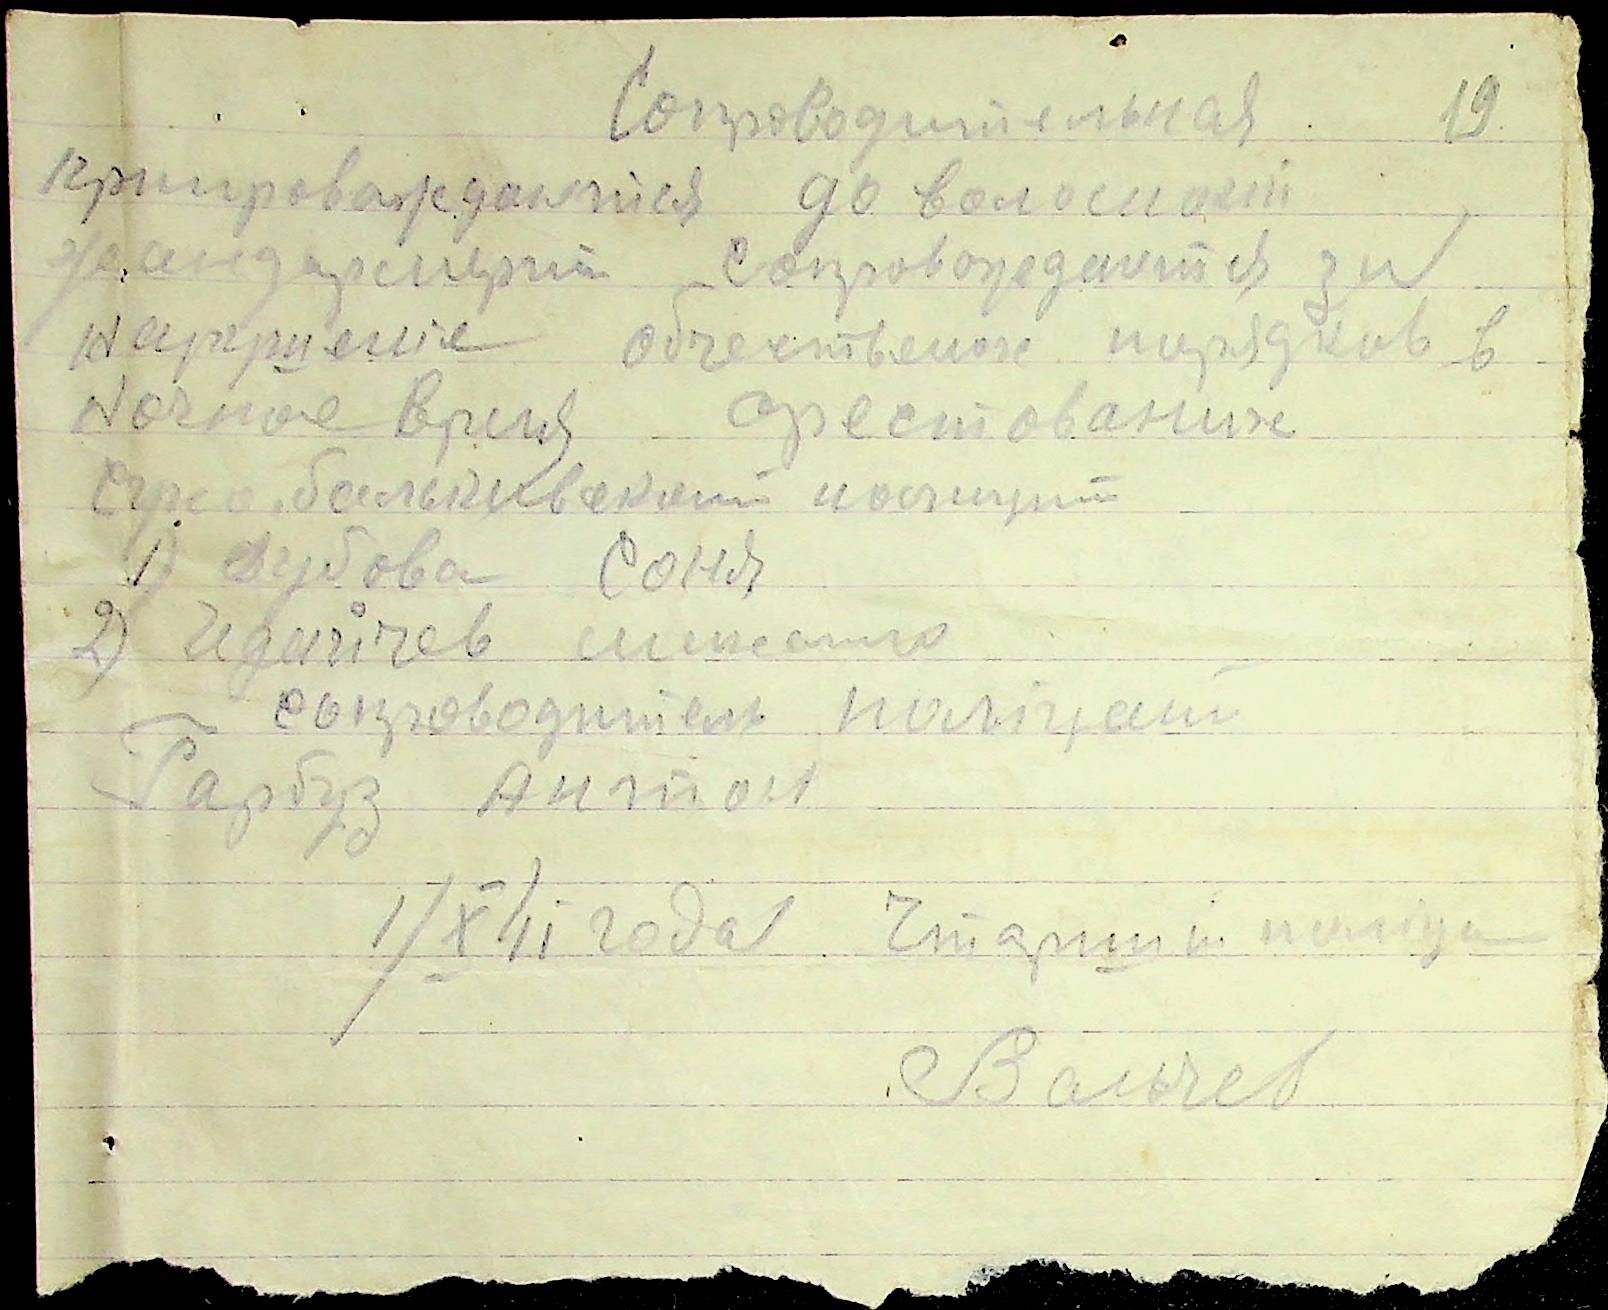 Сопроводительная 19
припроваждаются до волосной
жандармерий Сопровождаются за
нарушение обчественых порядков в
Ночное время арестованих
полиций
1) Дубова Соня
2)
сопроводитель поліцай
Гарбуз Антон
1/X 41 года Старший поліца
Вальчев